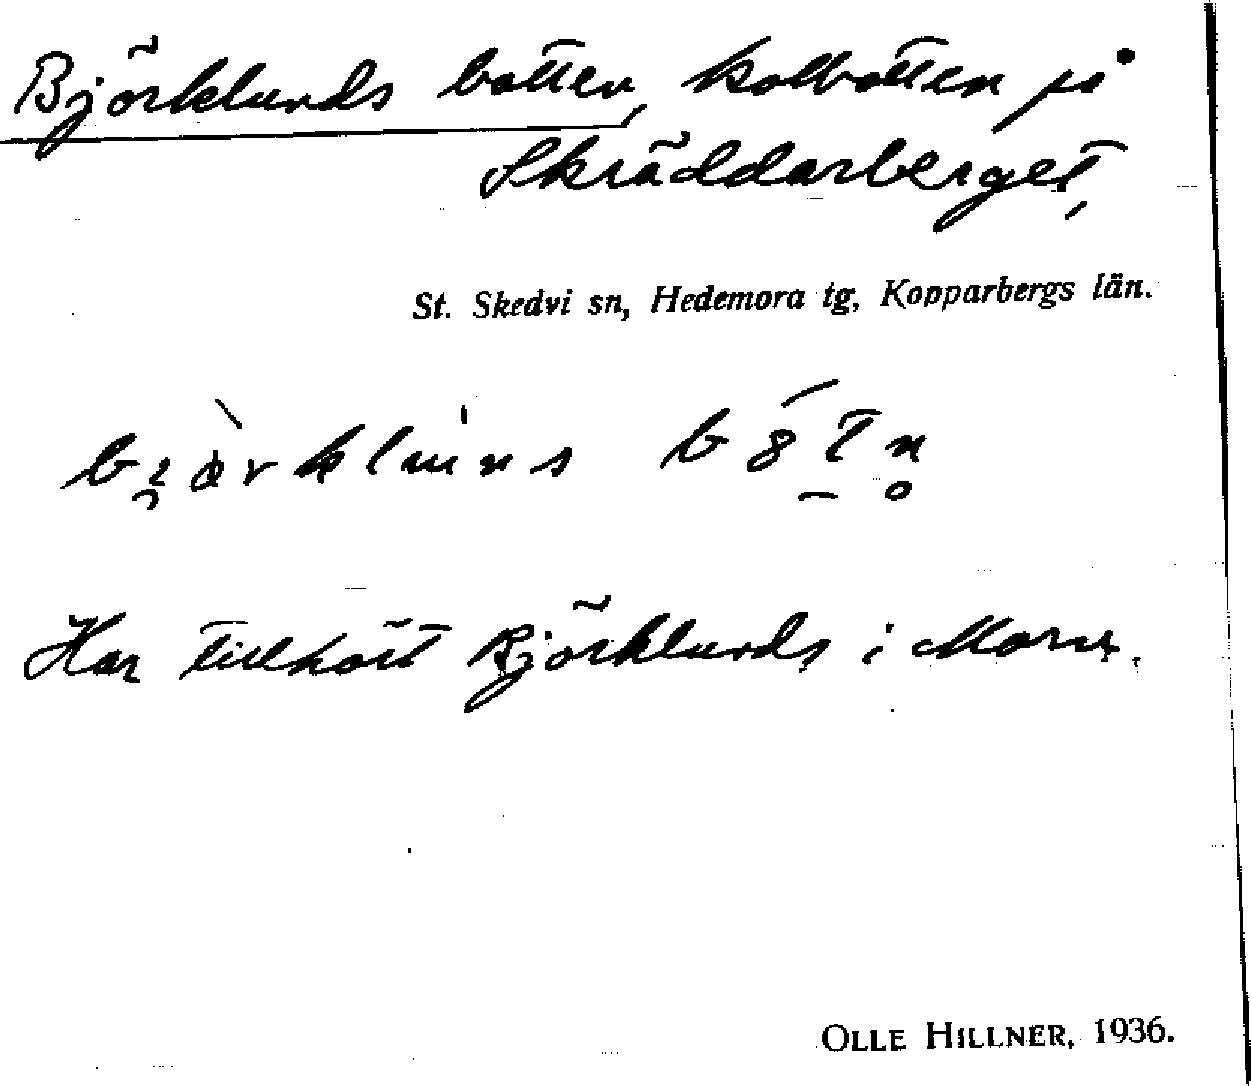 Björklunds botten, kolbotten på
Skräddarberget,
St. Skedvi sn, Hedemora tg, Kopparbergs län.
Har tillhört Björklunds i
OLLE HILLNER, 1936.